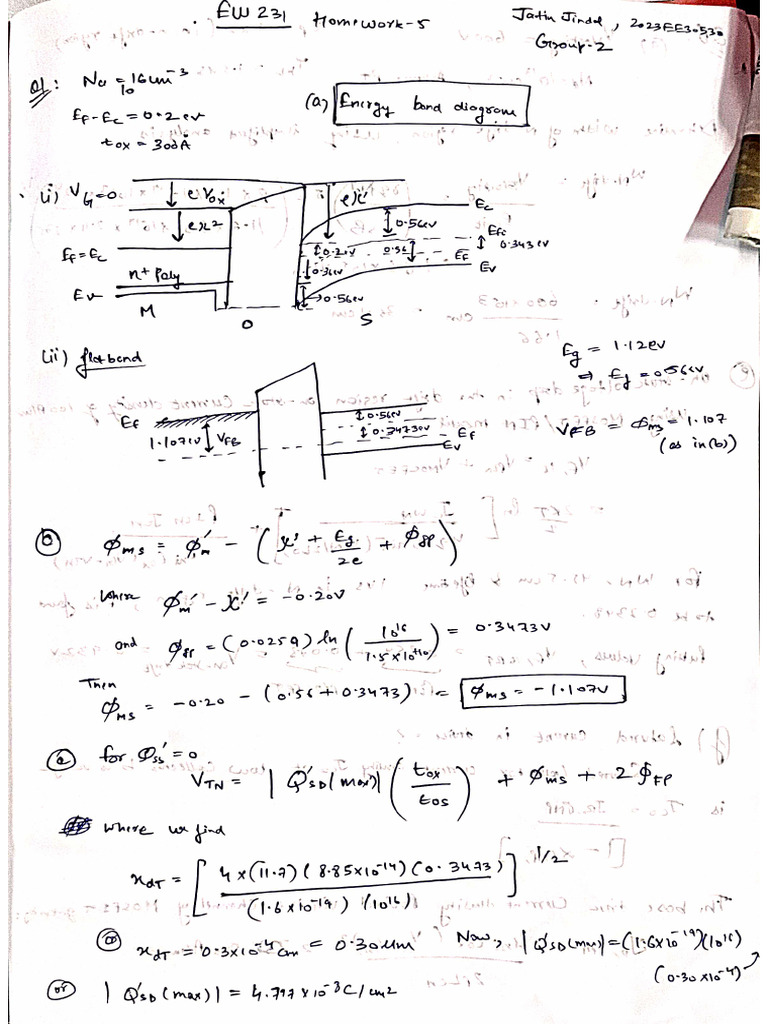 EW 231 Homework-5
Jatin Jindal, 2023EE30530
Group-2
Q1: Na = 10^16 cm^-3
EF-Ec = 0.2 ev
tox = 300A
(a) Energy band diagram
(i) VG=0
eVox
ex'
ex2
Ec
0.56ev
EFi
0.343 ev
EF=Ec
0.20V
0.56
EF
Ev
n+ Poly
0.36ev
Ev
0.56ev
M
O
S
(ii) flatband
Eg = 1.12ev
⇒ Eg = 0.56ev
EF
0.56ev
0.3473ev
EF
Ev
1.107ev
VFB
VFB = Φms = 1.107
(as in (b))
(b) Φms = Φm' - (x' + Eg/2e + ΦFP)
Where Φm' - x' = -0.20V
and ΦFP = (0.0259) ln (10^16 / 1.5×10^+10) = 0.3473V
Then
ΦMS = -0.20 - (0.56+0.3473) = Φms = -1.107V
for Qss' = 0
VTN = |Q'SD(max)| (tox / Eos) + Φms + 2ΦFP
where we find
xdT = [4×(11.7)(8.85×10^-14)(0.3473) / (1.6×10^-19)(10^16)]^1/2
or xdT = 0.3×10^-4 cm = 0.30um Now, |Q'SD(max)| = (1.6×10^-19)(10^16)
(0.30×10^-4)
or |Q'SD(max)| = 4.797×10^-3 C/cm2